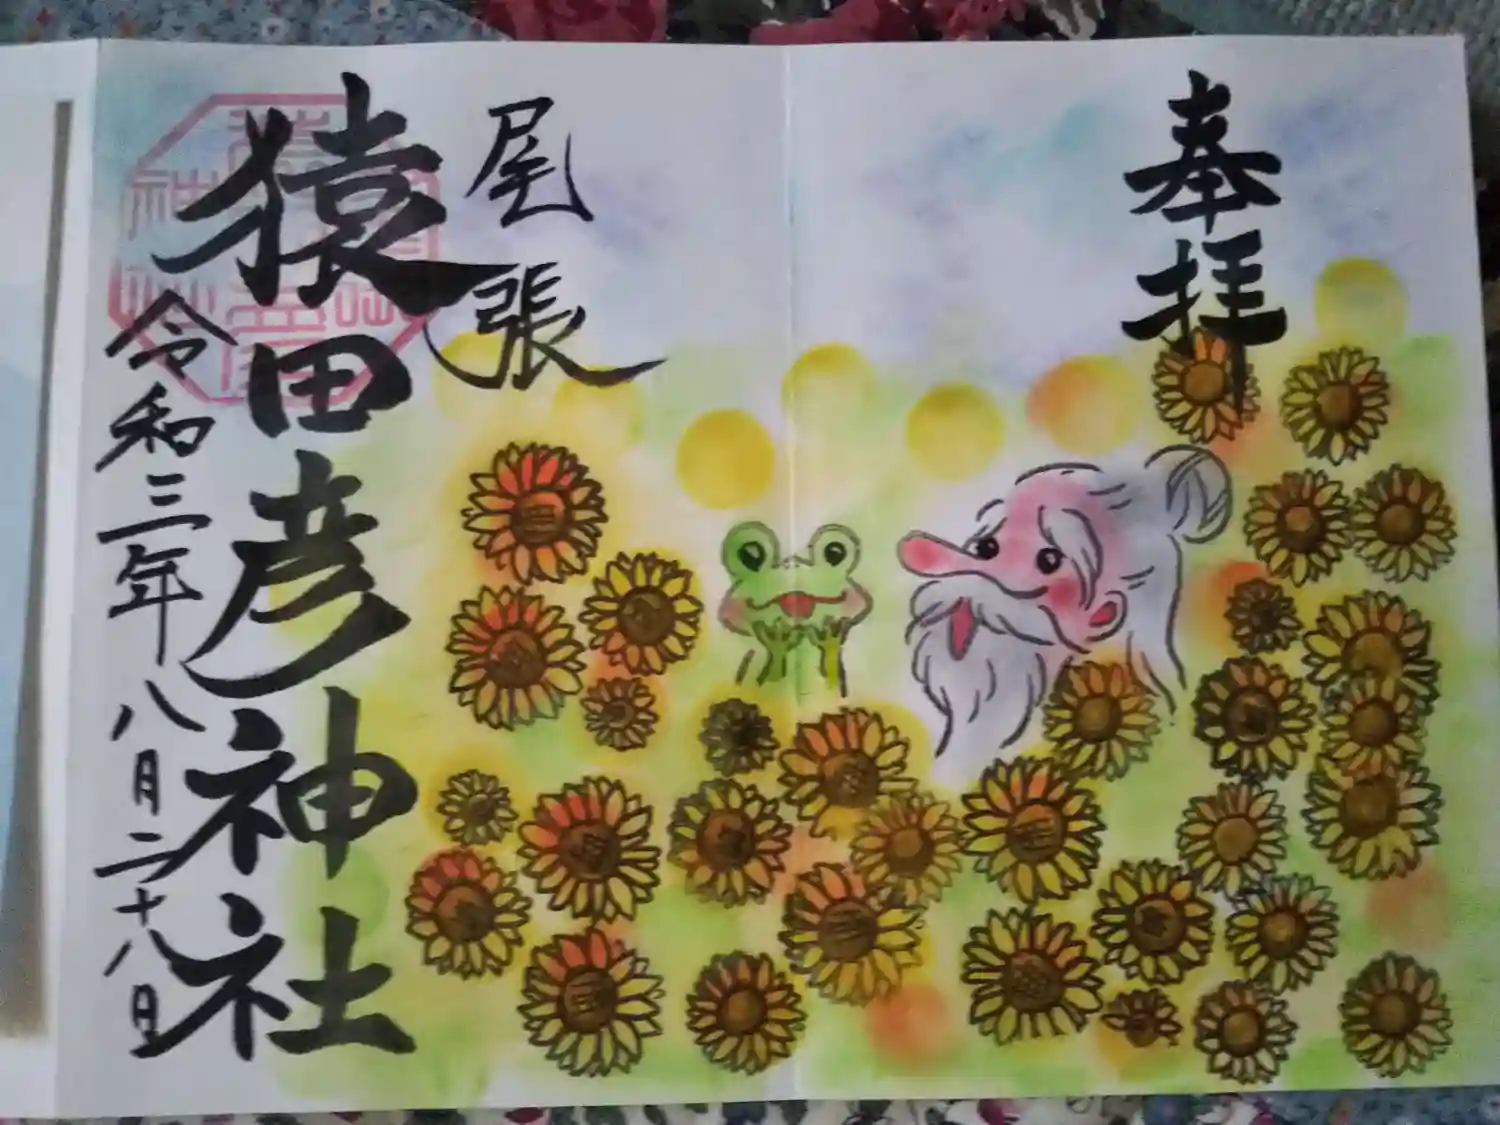 奉拝
尾張
猿田彦神社
令和三年八月二十八日